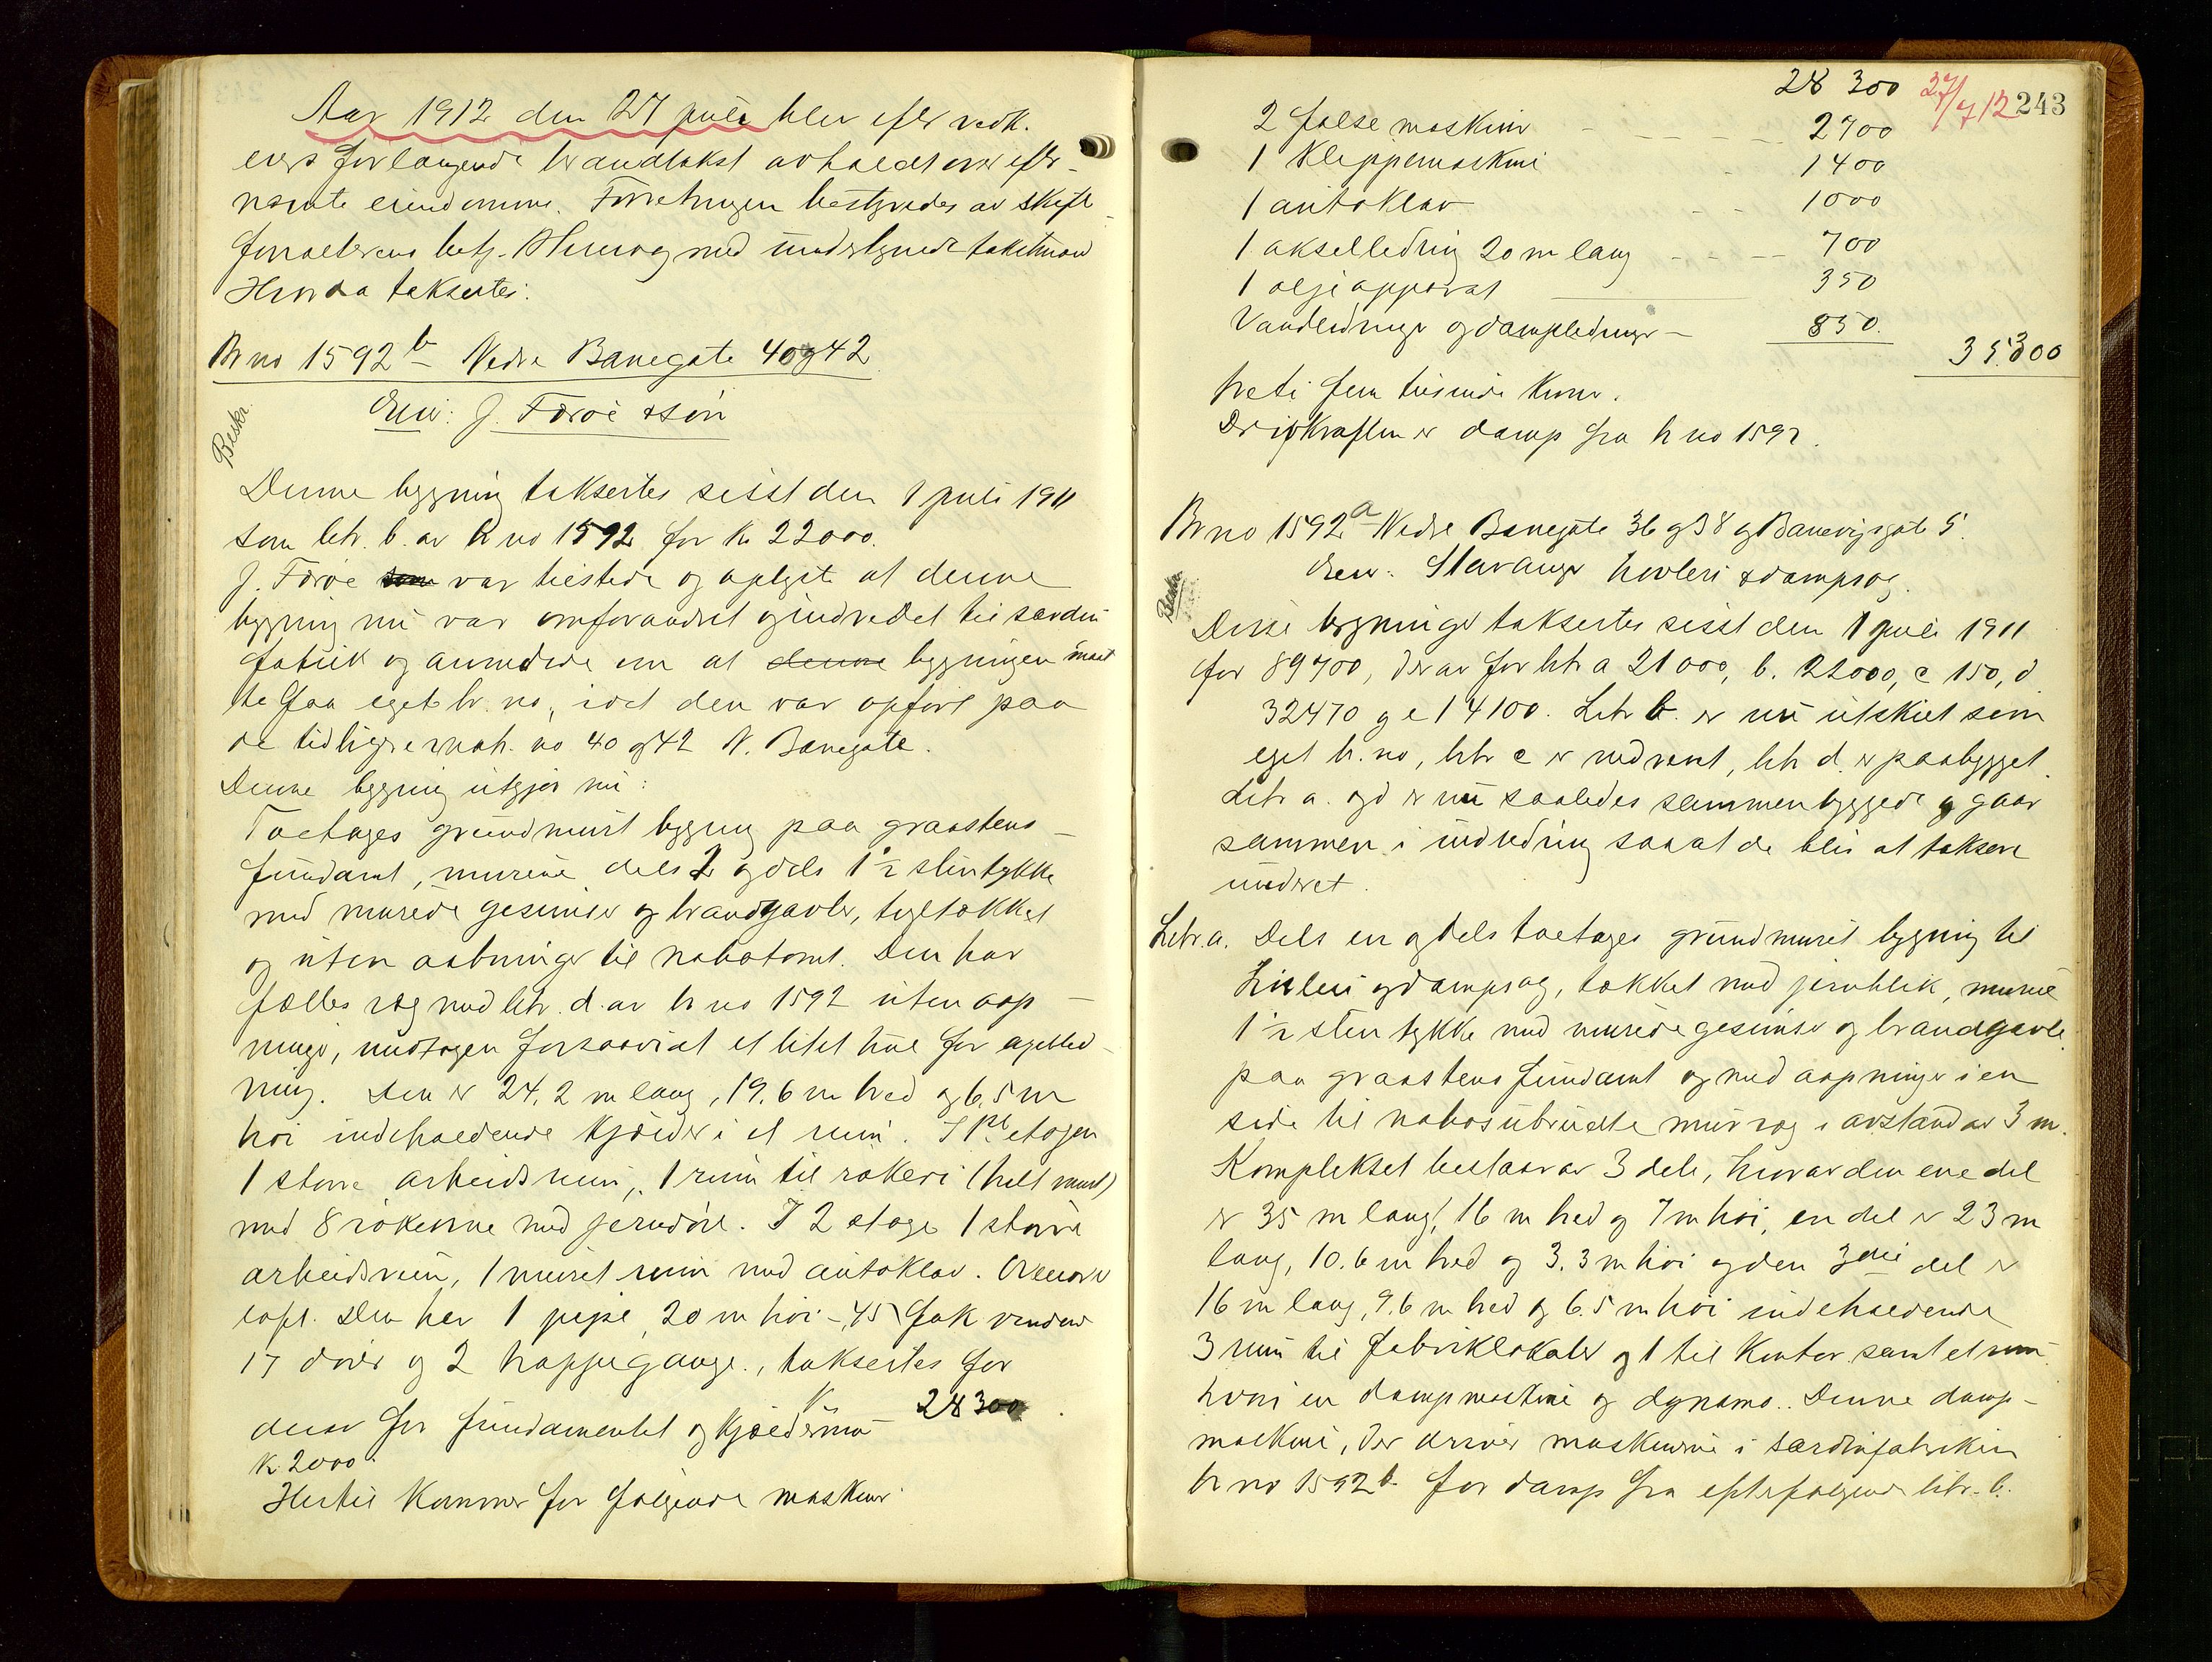 Aar 1912 den 27 juli blev efter vedk.
eiers forlangende brandtakst avholdt over efter-
nævnte eiendomme. Forretningen bestyredes av skifte
forvalterens med undertegnede takstmænd
taksertes:
Br no 1592 b Nedre Banegate 40 og 42
Beskr.
Eier: J. Færøe & søn
Denne bygning taksertes sisst den 1 juli 1911
som litr. b. av br no 1592 for kr 22000.
J. Færøe som var tilstede og oplyste at denne
bygning nu var omforandret og indredet til sardin
fabrik og anmodede om at denne bygningen maat
te faa eget br. no, idet den var opført paa
de tidligere matr. no 40 og 42 N. Banegate.
Denne bygning utgjør nu:
Toetages grundmuret bygning paa graastens-
fundamt, murene dels 2 og dels 1½ sten tykke
med murede gesimser og brandgavler, teglтækket
og uten aabninger til nabotomt. Den har
fælles væg med litr. d. av br no 1592 uten aap-
ninger, undtagen forsaavidt et litet hul for aksel led-
ning. Den er 24,2 m lang, 19.6 m bred og 6,5 m
høi indeholdende kjælder i et rum. I 1ste etagen
1 større arbeidsrum, 1 rum til røkeri (helt muret)
med 8 røkovne med jerndøre. I 2 etage 1 større
arbeidsrum, 1 muret rum med autoklav. Ovenover
loft. Den har 1 pipe, 20 m høi - 45 fak vinduer
17 dører og 2 trappegange, taksertes for
K 28300
derav for fundamentet og kjældermur
K. 2000.
Hertil kommer for følgende maskiner
28 300 27/7 12 243
2 false maskiner - - - - - 2700
1 klippemaskine - 1400
1 autoklav - - 1000
1 akselledning 20 m lang - - - - 700
1 oljeapparat 350
Vandledninger og dampledninger - 850.
35.300
treti fem tusinde kroner.
Drivkraften er damp fra br no 1592.
Br no 1592 a Nedre Banegate 36 og 38 og Banevigsgate 5.
Beskr.
Eier: Stavanger høvleri & dampsag.
Disse bygninger taksertes sisst den 1 juli 1911
for 89700, derav for litr a 21000, b. 22000, c 150, d
32470 og e 14100. Litr b. er nu utskilt som
eget br. no, litr c er nedrevet, litr d. er paabygget.
Litr a. og d er nu saaledes sammenbyggede og gaar
sammen i indredning saa at de blir at taksere
under et.
Litr. a. Dels en og dels toetages grundmuret bygning til
høvleri og dampsag, tækket med jernblik, murene
1½ sten tykke med murede gesimser og brandgavle
paa graastens fundamt og med aapninger i en
side til nabos ubrudte murvæg i avstand av 3 m.
Komplekset bestaar av 3 dele, hvorav den ene del
er 35 m lang, 16 m bred og 7 m høi, en del er 23 m
lang, 10.6 m bred og 3.3 m høi og den 3die del er
16 m lang, 9.6 m bred og 6.5 m høi indeholdende
3 rum til fabriklokaler og 1 til kontor samt et rum
hvori en dampmaskine og dynamo. Denne damp-
maskine, der driver maskinerne i sardinfabrikken
br no 1592 b. faar damp fra efterfølgende litr. b.